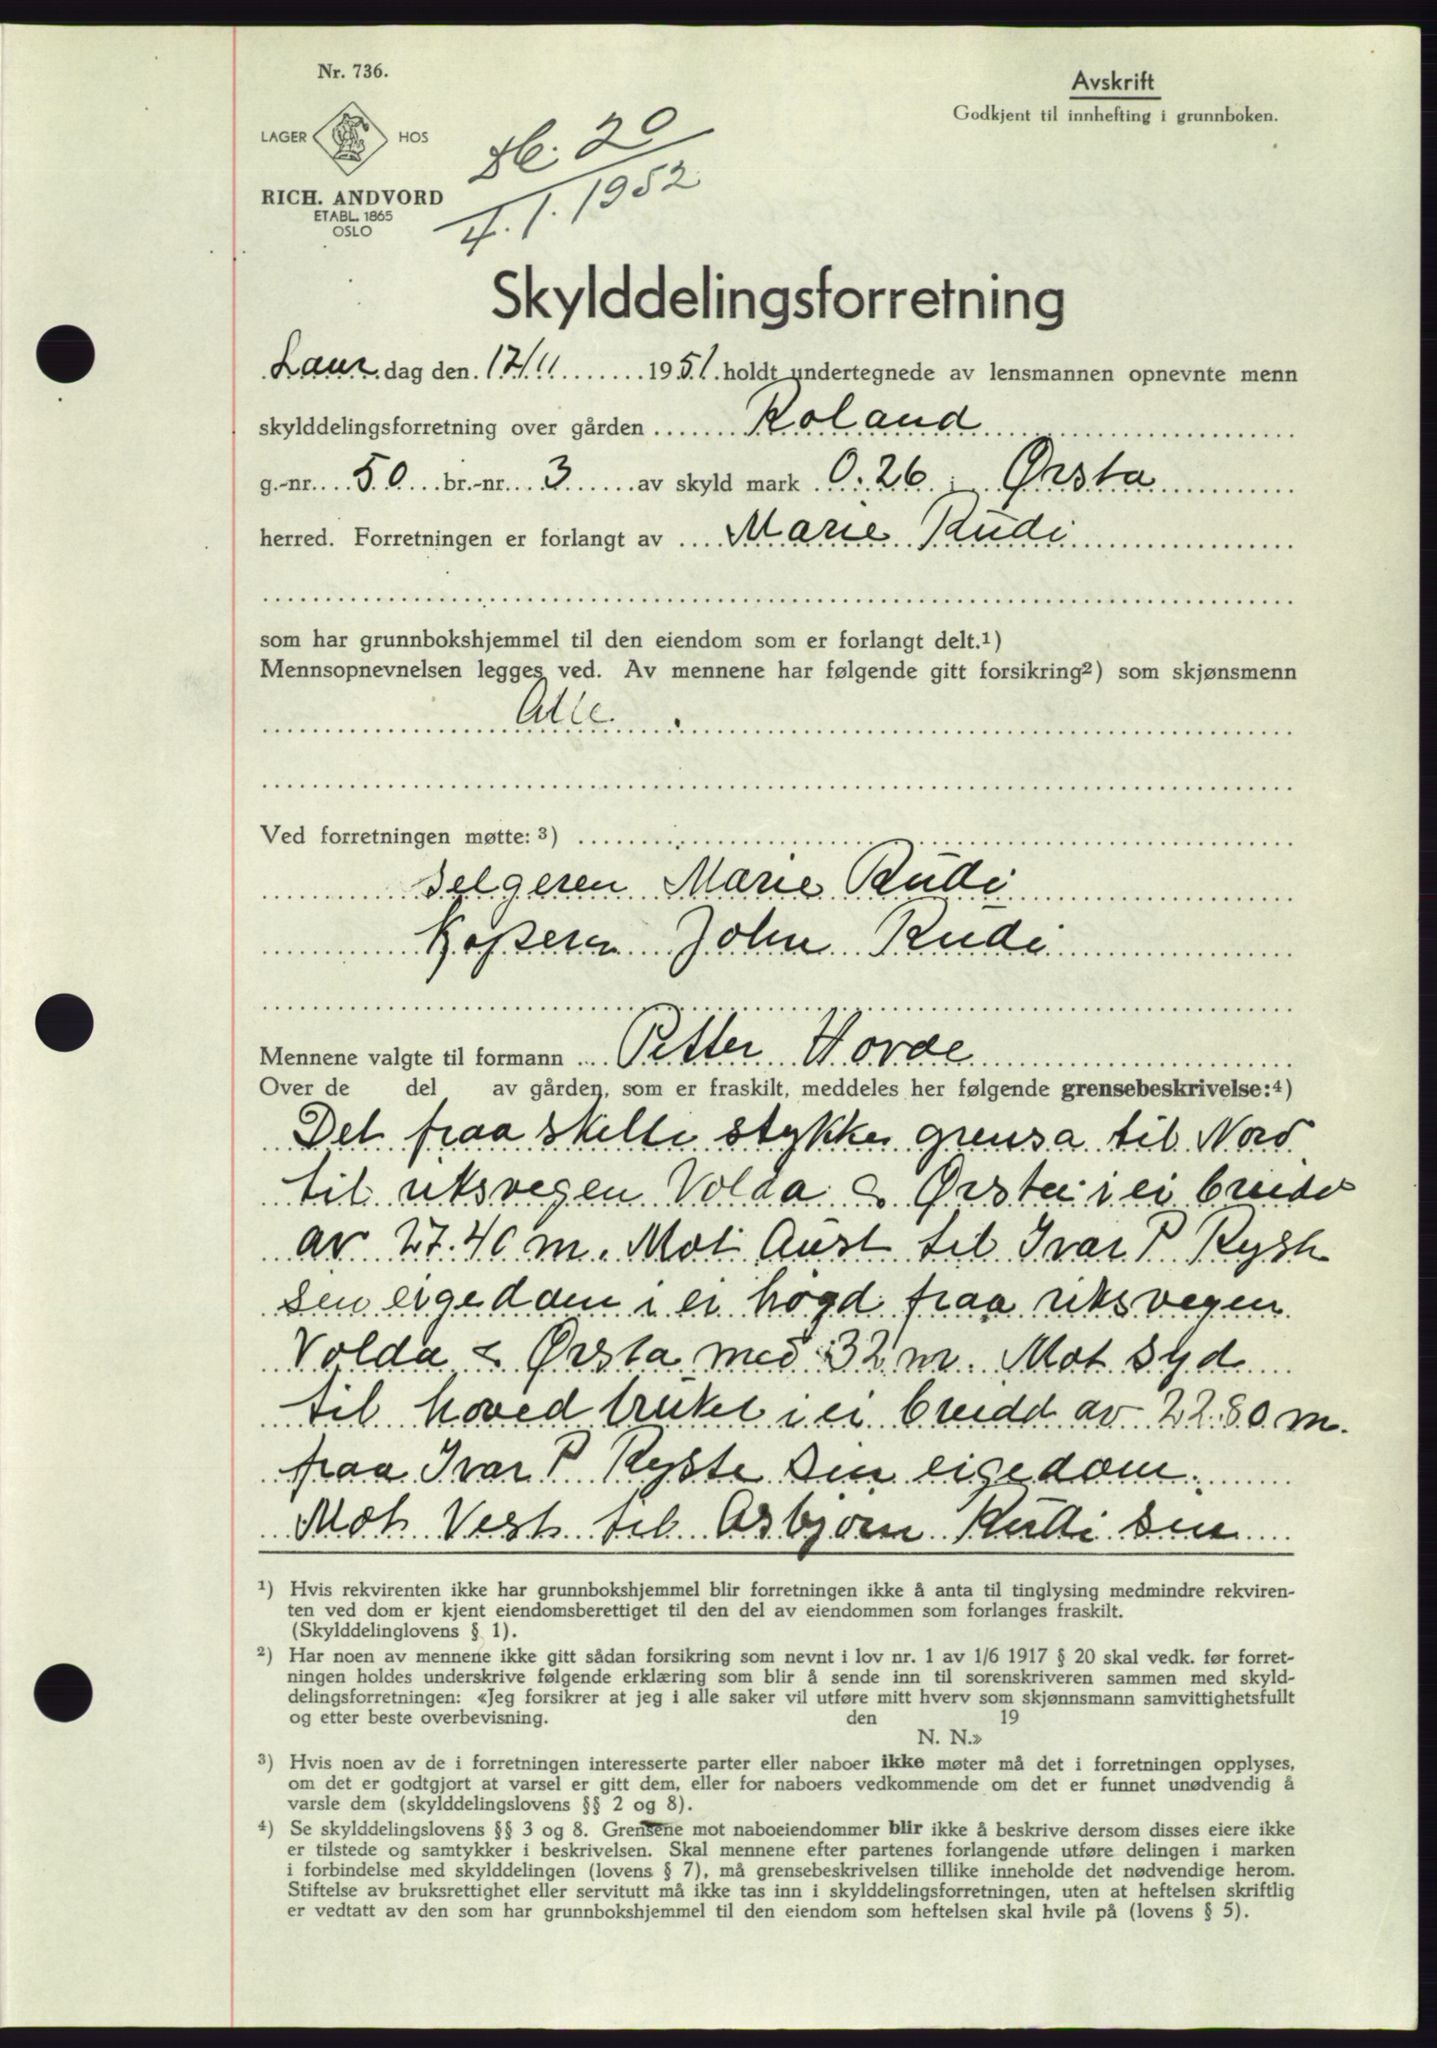 Nr. 736.
Avskrift
Godkjent til innhefting i grunnboken.
LAGER HOS
RICH. ANDVORD
ETABL. 1865
OSLO
Db. 20
4.1.1952
Skylddelingsforretning
Laur dag den 17/11 1951 holdt undertegnede av lensmannen opnevnte menn
skylddelingsforretning over gården Roland
g.-nr. 50 br.-nr. 3 av skyld mark 0.26 i Ørsta
herred. Forretningen er forlangt av Marie Rudi
som har grunnbokshjemmel til den eiendom som er forlangt delt.¹)
Mennsopnevnelsen legges ved. Av mennene har følgende gitt forsikring²) som skjønsmenn
Alle.
Ved forretningen møtte: ³)
Selgeren Marie Rudi
Kjøperen John Rudi
Mennene valgte til formann Petter Hovde
Over de del av gården, som er fraskilt, meddeles her følgende grensebeskrivelse:⁴)
Det fraaskilte stykke grensa til Nord
til riksvegen Volda - Ørsta i ei breide
av 27.40 m. Mot Aust til Ivar P Ryste
sin eigedom i ei høgd fraa riksvegen
Volda - Ørsta med 32 m. Mot syd
til hovedbruket i ei breidd av 22.80 m.
fraa Ivar P Ryste sin eigedom.
Mot Vest til Asbjørn Rudi sin
¹) Hvis rekvirenten ikke har grunnbokshjemmel blir forretningen ikke å anta til tinglysing medmindre rekviren-
ten ved dom er kjent eiendomsberettiget til den del av eiendommen som forlanges fraskilt.
(Skylddelinglovens § 1).
²) Har noen av mennene ikke gitt sådan forsikring som nevnt i lov nr. 1 av 1/6 1917 § 20 skal vedk. før forret-
ningen holdes underskrive følgende erklæring som blir å sende inn til sorenskriveren sammen med skyld-
delingsforretningen: «Jeg forsikrer at jeg i alle saker vil utføre mitt hverv som skjønnsmann samvittighetsfullt
og etter beste overbevisning. den 19
N. N.»
³) Hvis noen av de i forretningen interesserte parter eller naboer ikke møter må det i forretningen opplyses,
om det er godtgjort at varsel er gitt dem, eller for naboers vedkommende om det er funnet unødvendig å
varsle dem (skylddelingslovens §§ 2 og 8).
⁴) Se skylddelingslovens §§ 3 og 8. Grensene mot naboeiendommer blir ikke å beskrive dersom disses eiere ikke
er tilstede og samtykker i beskrivelsen. Skal mennene efter partenes forlangende utføre delingen i marken
i forbindelse med skylddelingen (lovens § 7), må grensebeskrivelsen tillike inneholde det nødvendige herom.
Stiftelse av bruksrettighet eller servitutt må ikke tas inn i skylddelingsforretningen, uten at heftelsen skriftlig
er vedtatt av den som har grunnbokshjemmel til den eiendom som heftelsen skal hvile på (lovens § 5).